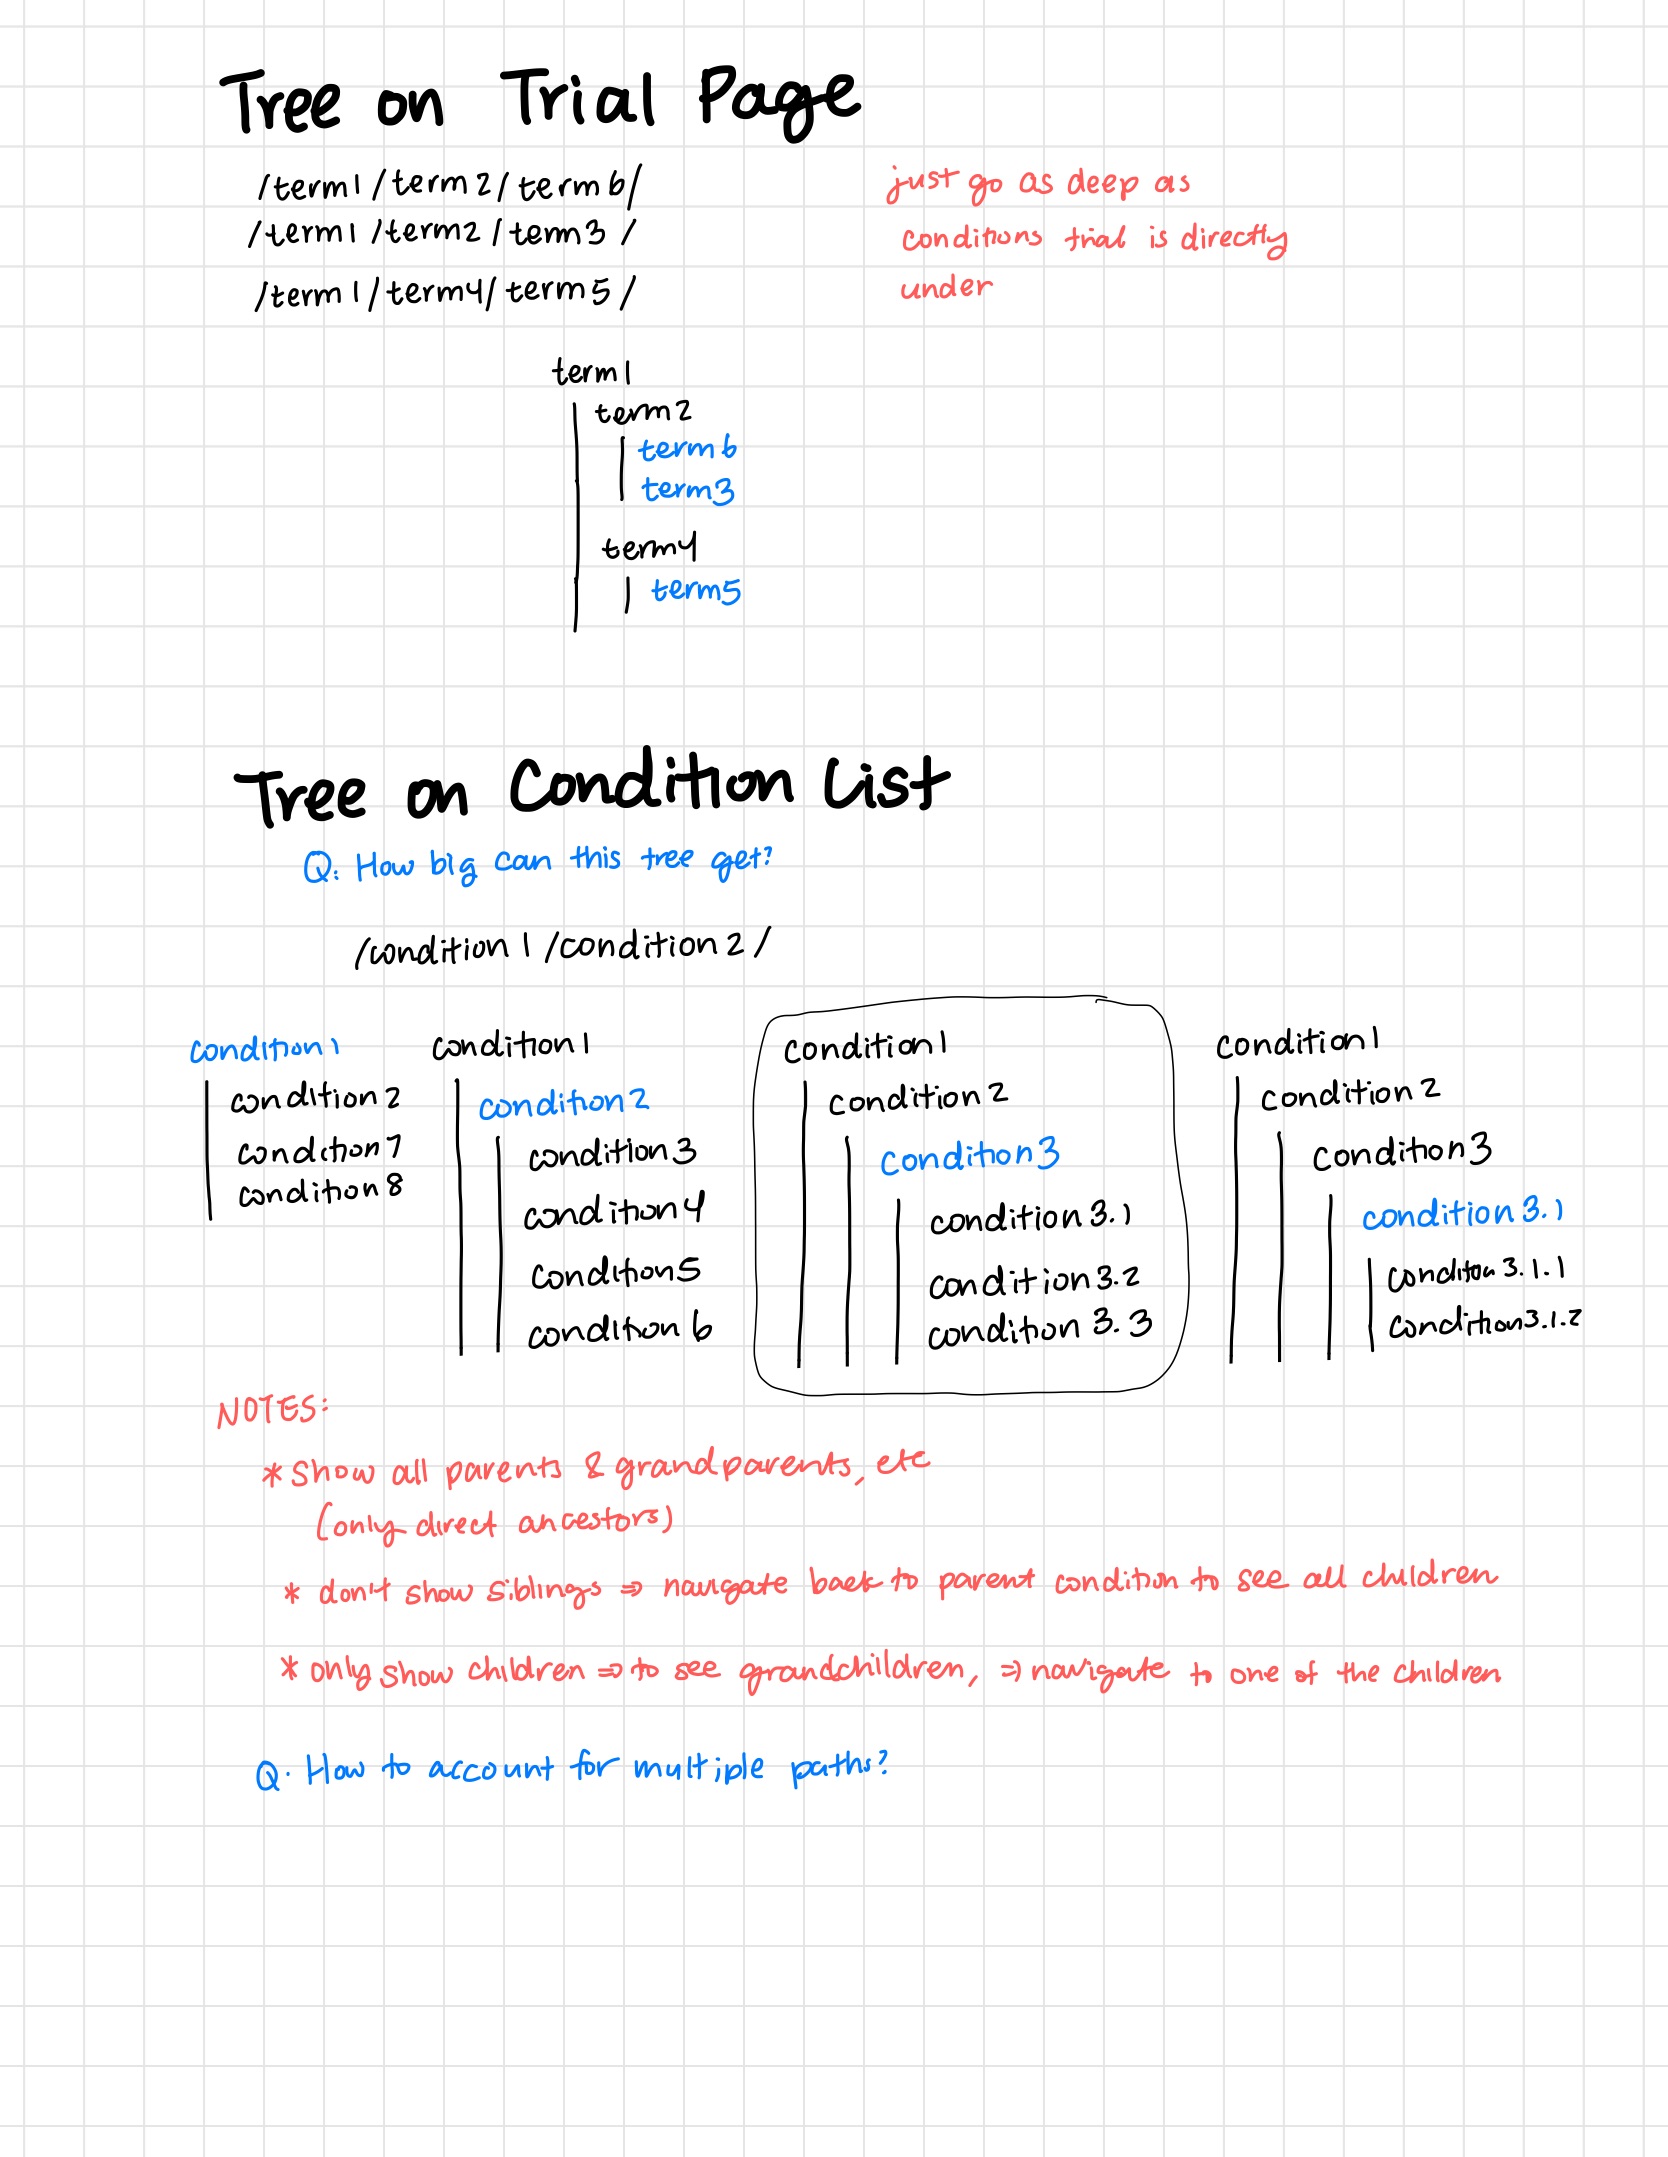 Tree on Trial Page
/term1/term2/term6/
/term1/term2/term3/
/term1/term4/term5/
just go as deep as
conditions trial is directly
under
term1
term2
term6
term3
term4
term5
Tree on Condition List
Q: How big can this tree get?
/condition1/condition2/
condition1
condition2
condition7
condition8
condition1
condition2
condition3
condition4
condition5
condition6
condition1
condition2
condition3
condition3.1
condition3.2
condition3.3
condition1
condition2
condition3
condition3.1
condition3.1.1
condition3.1.2
NOTES:
* show all parents & grandparents, etc
(only direct ancestors)
* don't show siblings ⇒ navigate back to parent condition to see all children
* only show children ⇒ to see grandchildren, ⇒ navigate to one of the children
Q: How to account for multiple paths?